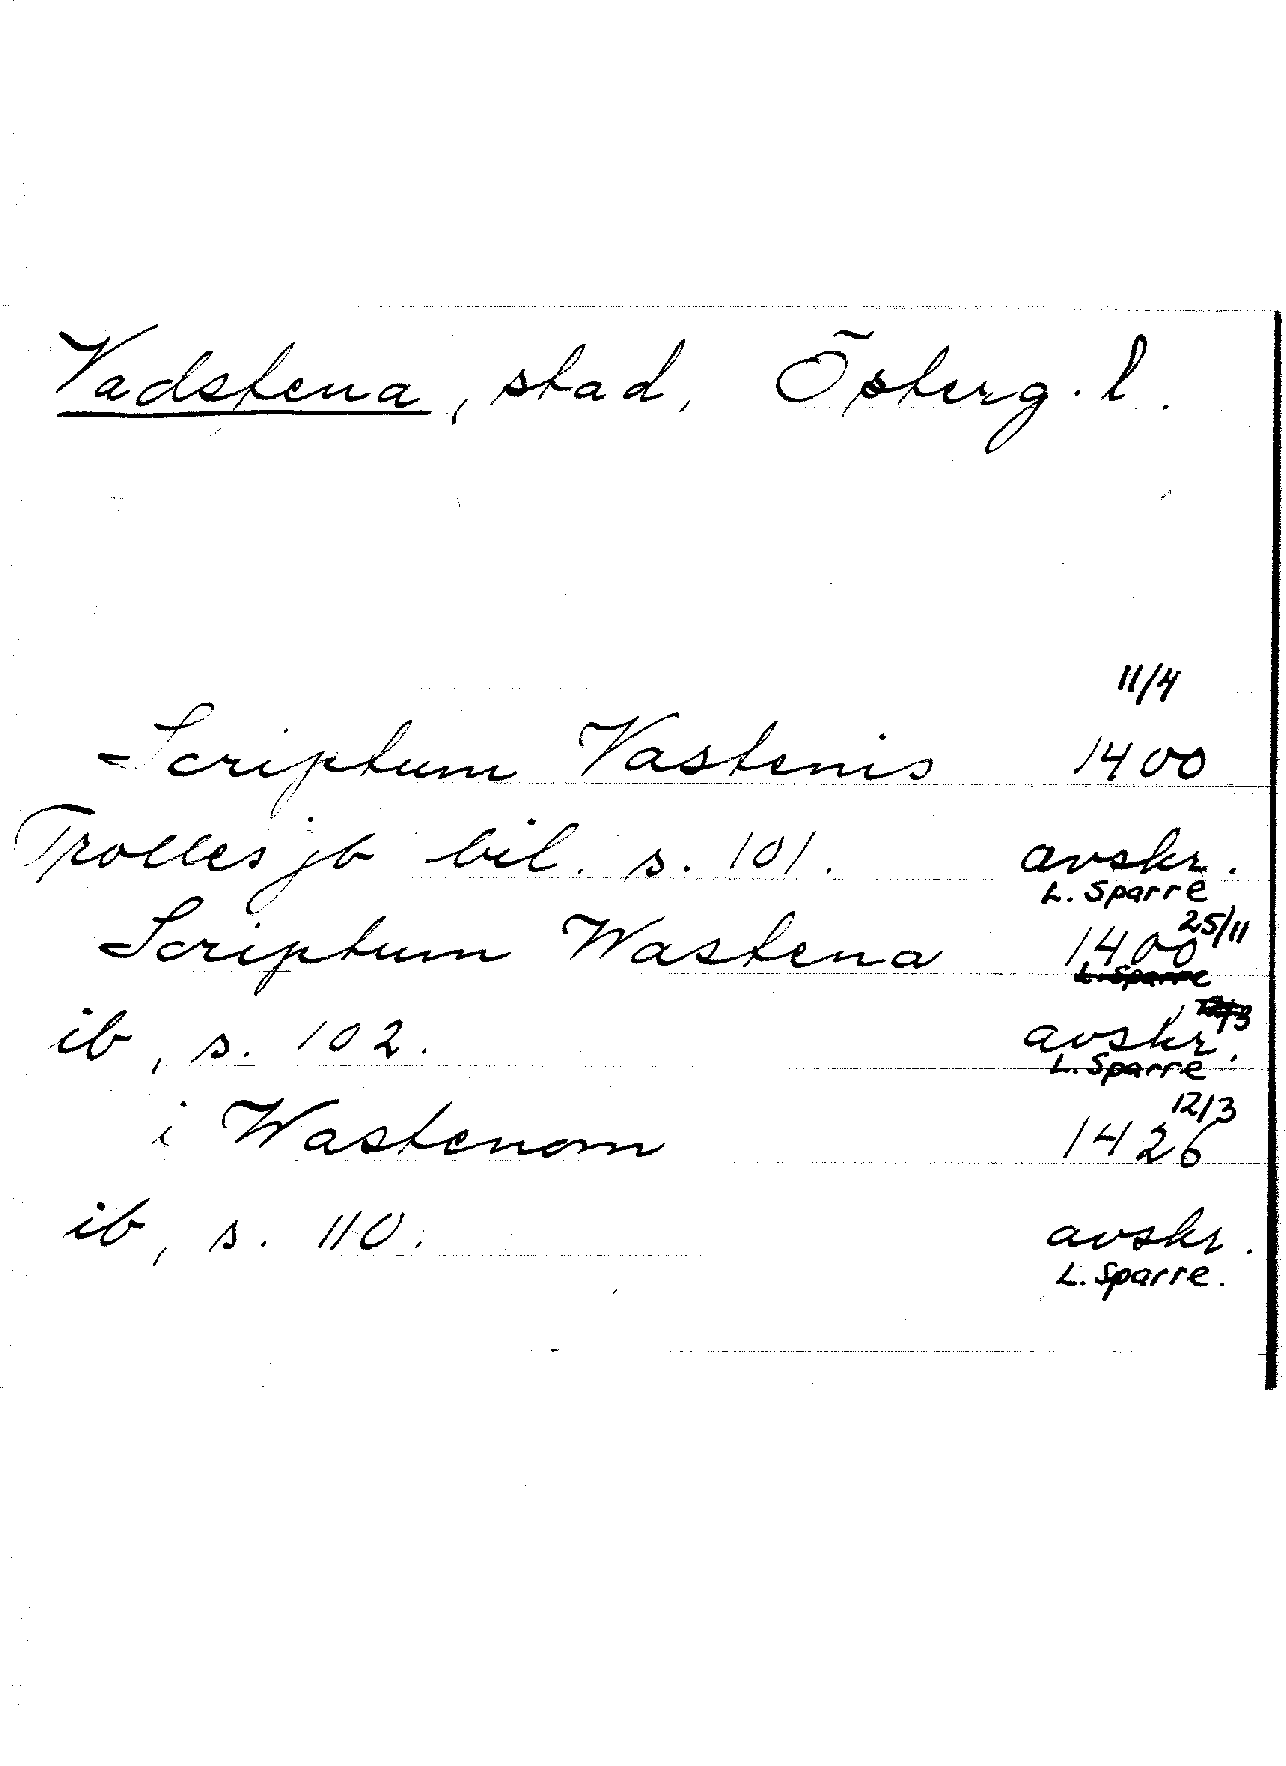 Vadstena, stad, Österg. l.
11/4
Scriptum Vastenis 1400
Trolles jb bil. s. 101. avskr.
L. Sparre
25/11
Scriptum Wastena 1400
L. Sparre
12/3
ib, s. 102. avskr.
L. Sparre
12/3
i Wastenom 1426
ib, s. 110. avskr.
L. Sparre.